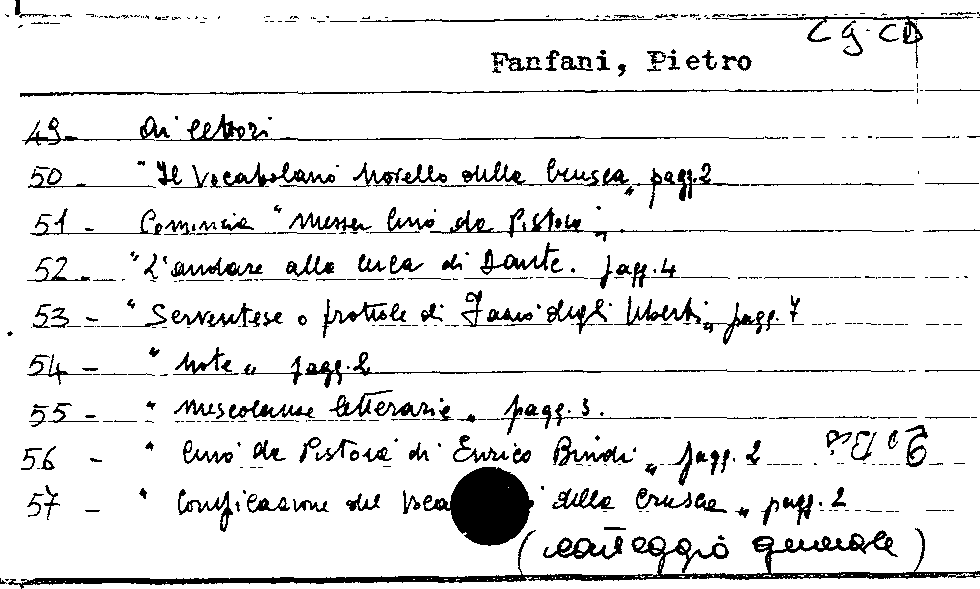 CG. CD
Fanfani, Pietro
49- Ai lettori
50 - "Il Vocabolario Novello della Crusca" pagg. 2
51 - Comincia "Messer Cino da Pistoia".
52 - "L'andare alla cerca di Dante. pagg. 4
53 - "Serventese o frottole di Fazio degli Uberti" pagg. 7
54 - "Note" pagg. 2
55 - "Mescolanze letterarie" pagg. 3.
56 - "Cino da Pistoia di Enrico Bindi" pagg. 2
57 - " del della Crusca" pagg. 2
(carteggio generale)